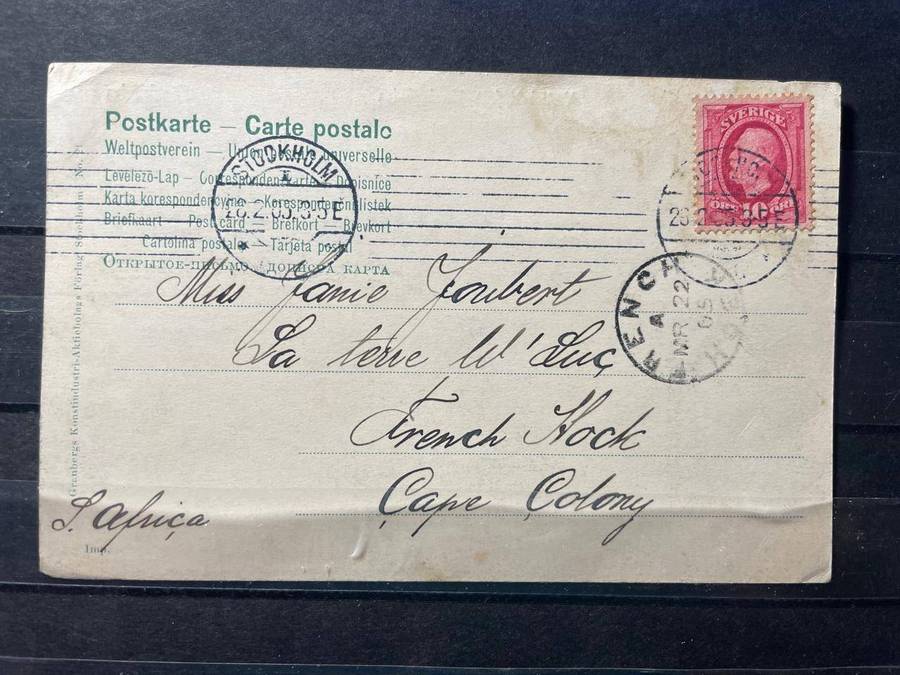 Postkarte – Carte postale
Weltpostverein – Union postale universelle
Levelező-Lap – Correspondenzkarte – Dopisnice
Karta korespondencyjna – Korespondenční lístek
Briefkaart – Post card – Brefkort – Brevkort
Cartolina postale – Tarjeta postal
Открытое-письмо – дописна карта
STOCKHOLM
1
28.2.05.3-5E
SVERIGE
ÖRE 10
28.2.05.3-5E
FRENCH
A
MR 22
05
Miss Janie Joubert
La terre W'Luç
French Hock
Çape Çolony
S. Afriça
Granbergs Konstindustri-Aktiebolags Förlag Stockholm
Imp.